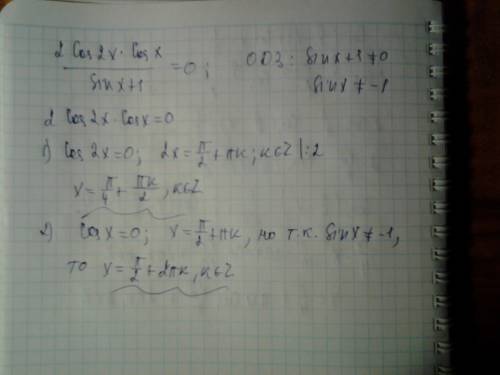 2 Cos2x · Cosx / Sinx+1 = 0; ОДЗ: Sinx+1≠0
Sinx ≠ -1
2 Cos2x · Cosx = 0
1) Cos2x = 0; 2x = π/2 + πk; k∈Z |:2
x = π/4 + πk/2, k∈Z
2) Cosx = 0; x = π/2 + πk, но т.к. Sinx ≠ -1,
то x = π/2 + 2πk, k∈Z